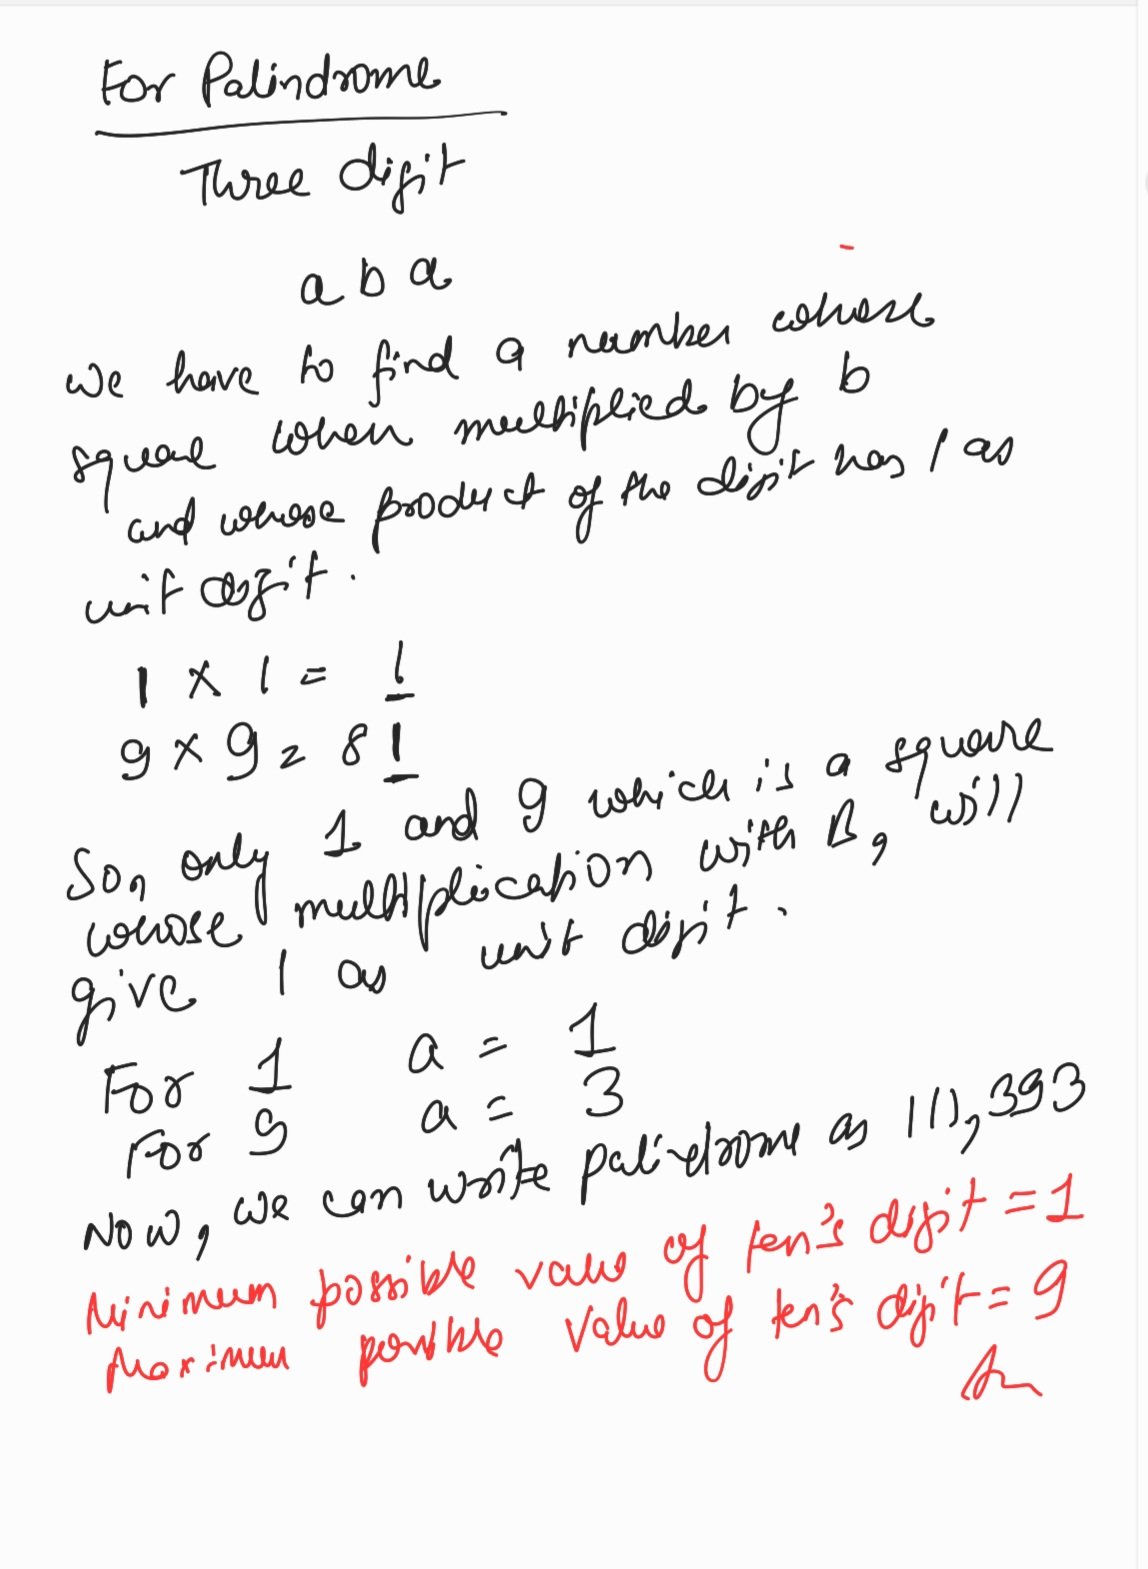 For Palindrome
Three digit
a b a
We have to find a number whose
square when multiplied by b
and whose product of the digit has 1 as
unit digit.
1 × 1 = 1
9 × 9 = 81
So, only 1 and 9 which is a square
whose multiplication with B, will
give 1 as unit digit.
For 1 a = 1
For 9 a = 3
Now, we can write palindrome as 111, 393
Minimum possible value of ten's digit = 1
Maximum possible value of ten's digit = 9